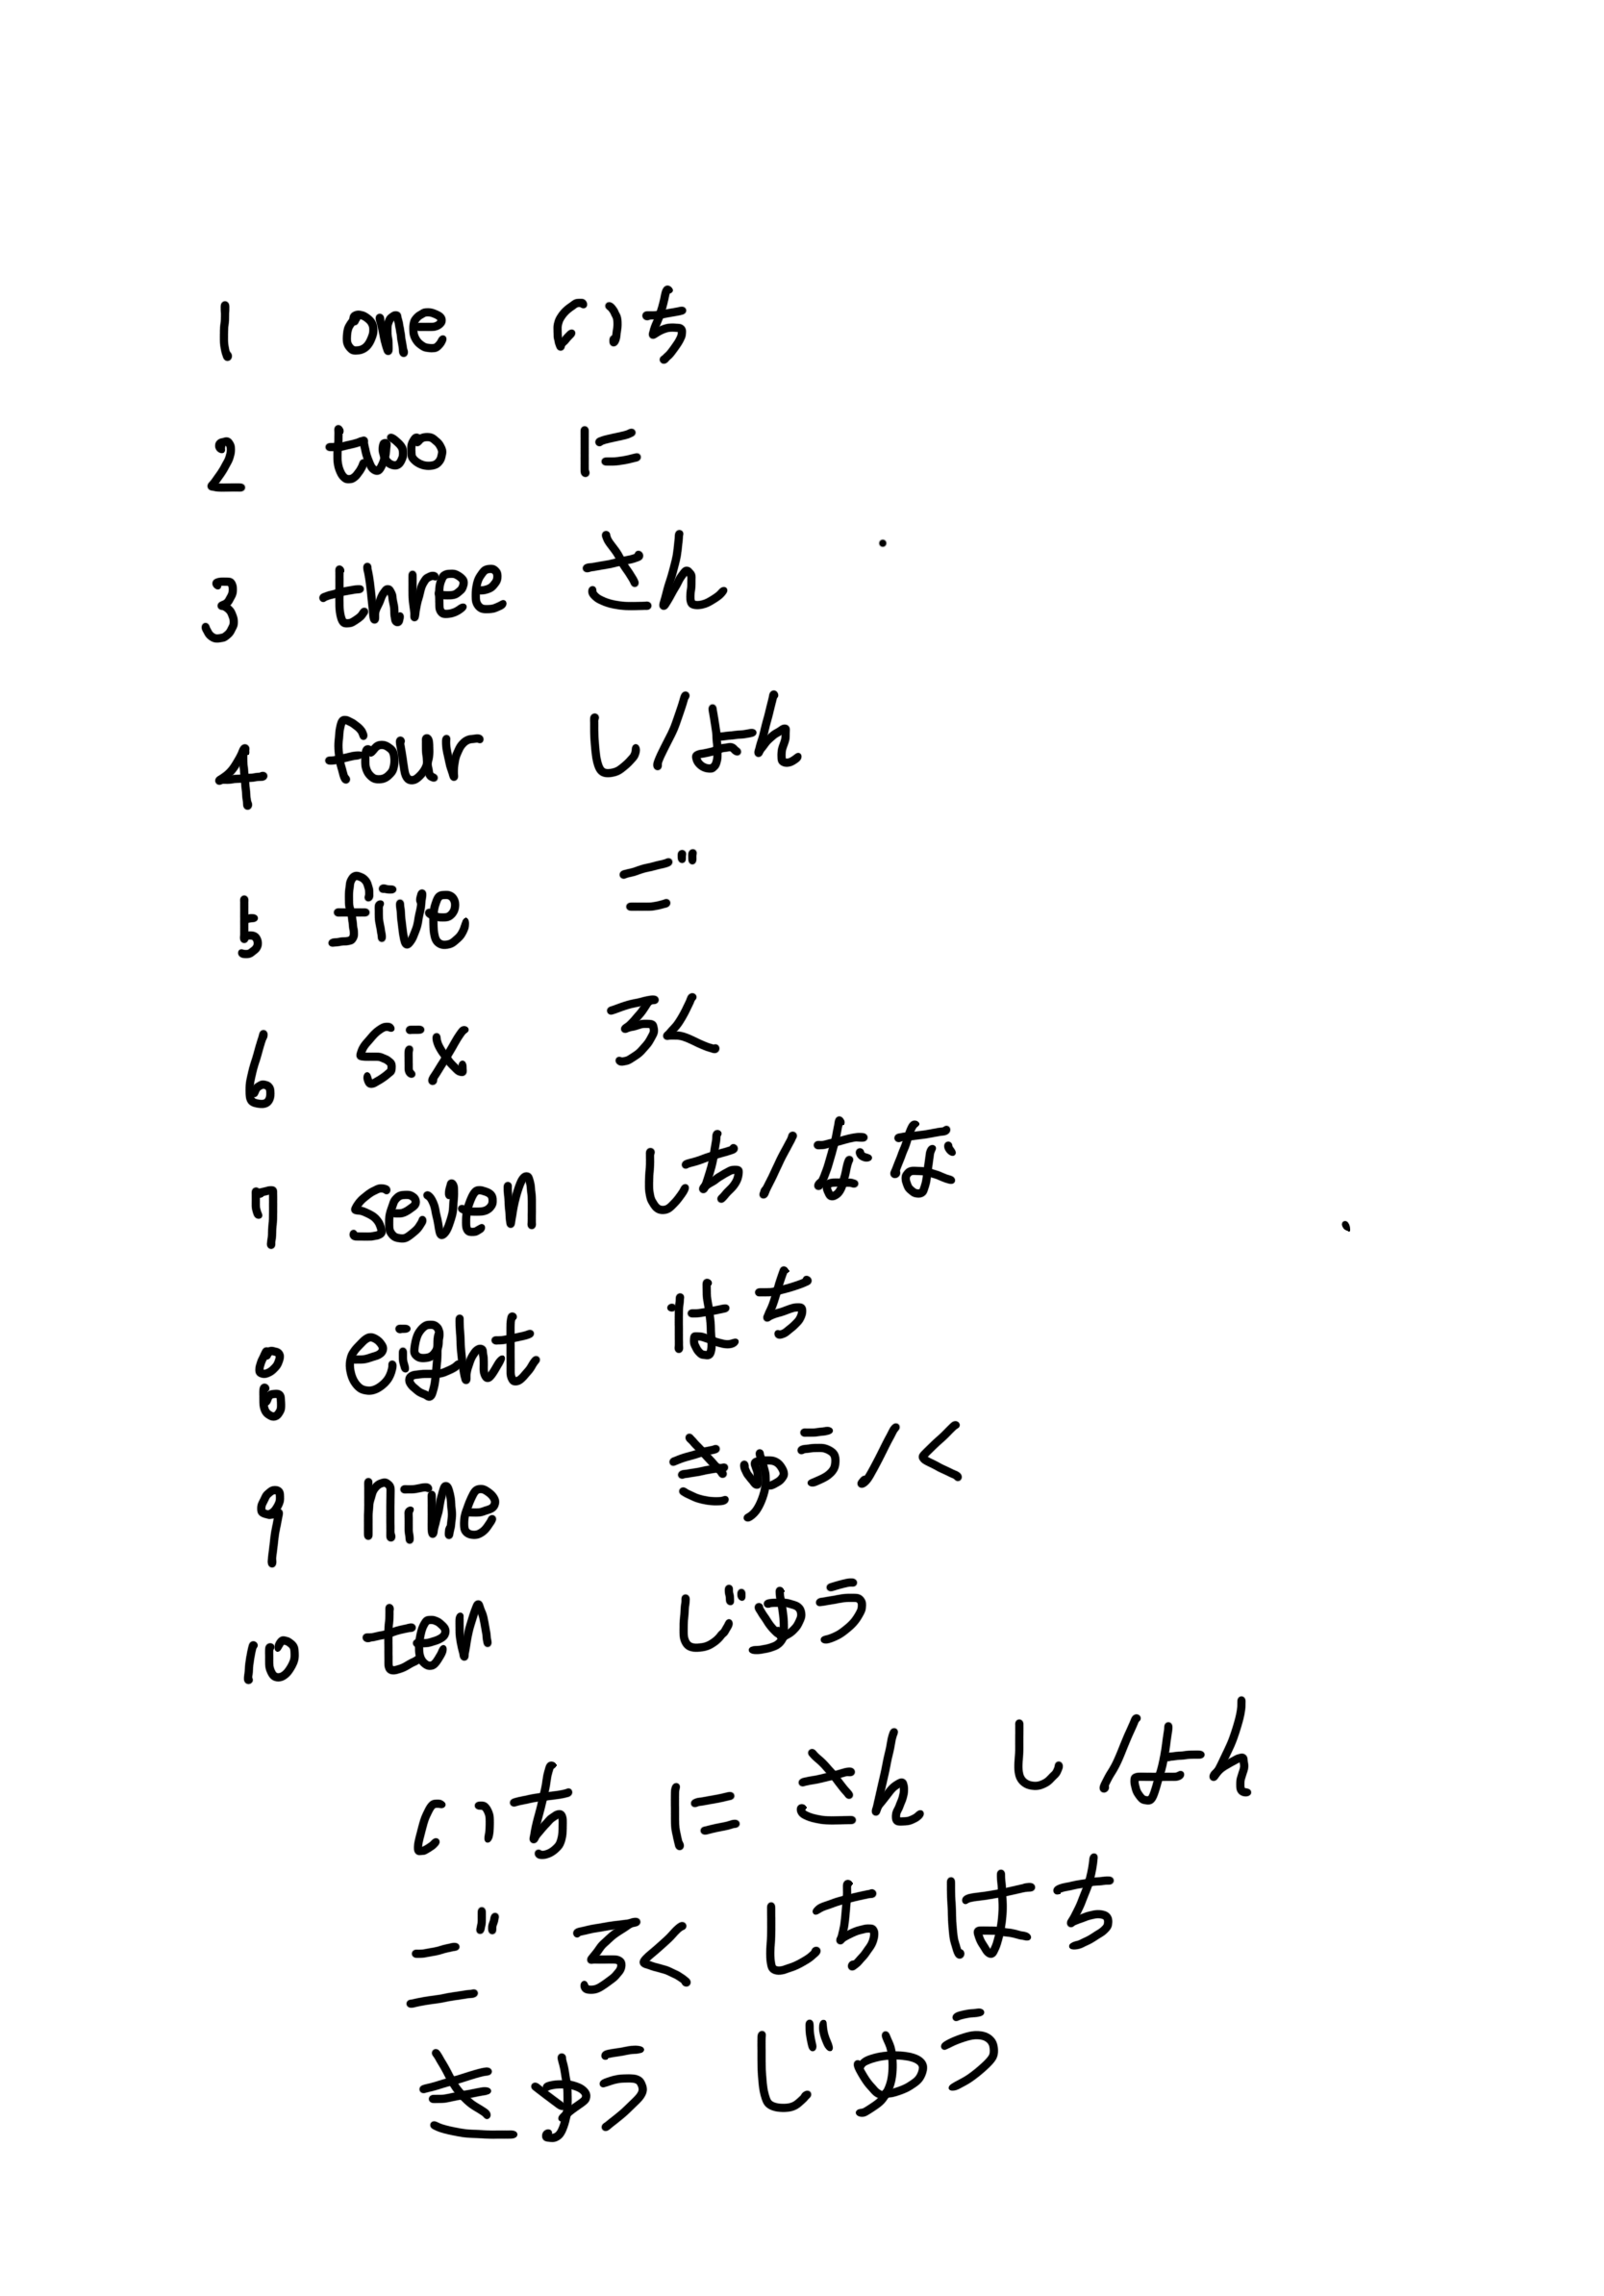 1 one いち
2 two に
3 three さん
4 four し/よん
5 five ご
6 six ろく
7 seven しち/なな
8 eight はち
9 nine きゅう/く
10 ten じゅう
いち に さん し/よん
ご ろく しち はち
きゅう じゅう